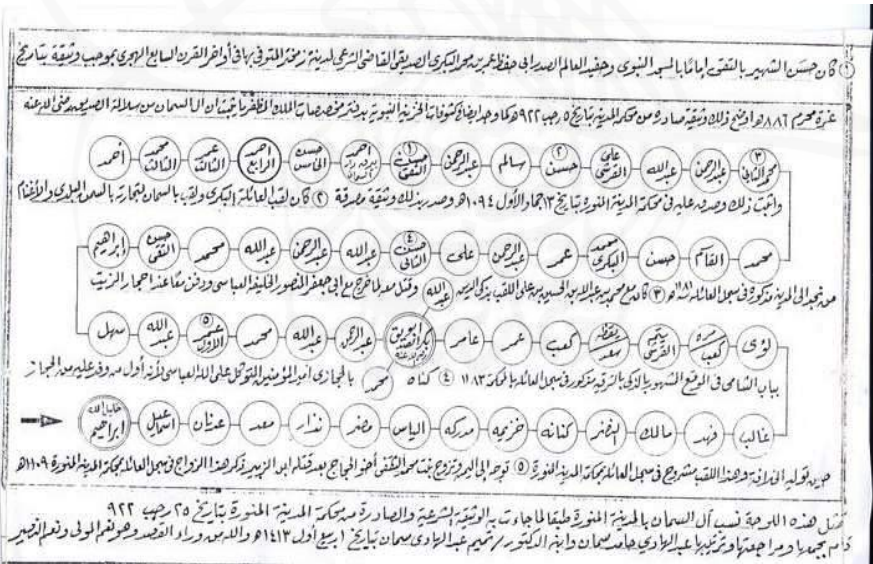 ① كان حسن الشهير بالتقي إمامًا بالمسجد النبوي وحفيد العالم الصدر ابي حفظ عمر بن محمد البكري الصديقي القاضي الشرعي لمدينة المتوفي بها في أواخر القرن السابع الهجري بموجب وثيقة بتاريخ
غرة محرم ٨٨٦ھ اوضح ذلك وثيقة صادرة من محكمة المدينة بتاريخ ٥ رجب ٩٢٢ھ كما وجد ايضا في كشوفات الخزينة النبوية بدفتر مخصصات الملك المظفر ما يثبت أن آل السمان من سلالة الصديق رضي الله عنه
③ محمد الثاني عبد الرحمن عبد الله علي القرشي ② حسين سالم عبد الرحمن ① حسن التقي احمد حسن الخامس احمد الرابع عمر الثالث محمد الثالث احمد
واثبت ذلك وصدق عليه في محكمة المدينة المنورة بتاريخ ١٣ جماد الأول ١٠٩٤ھ وصدر بذلك وثيقة مصدقة ② كان لقب العائلة البكري ولقب بالسمان لتجارته بالسمن البلدي والأغنام
محمد القاسم حسن محمد البكري عمر عبد الرحمن علي ④ حسن الثاني عبد الله عبد الرحمن عبد الله محمد حسن التقي إبراهيم
من نجد الى المدينة مذكورة في سجل العائلة ③ كان مع محمد بن عبد الله بن الحسين بن علي الملقب بذكي الدين وقتل معه لما خرج مع ابي جعفر المنصور الخليفة العباسي ودفن معًا عند احجار الزيت
عبد الله
لؤى كعب مره تيم القرشي سعد كعب عمر عامر ابو بكر الصديق رضي الله عنه عبد الرحمن عبد الله محمد ⑤ عمر الأول عبد الله سهل
محمد
بباب الشامي في الموقع الشهير بالذكي بالشرقية مذكور في سجل العائلة بالمحكمة ١١٨٣ ④ كناه بالحجازي امير المؤمنين المتوكل على الله العباسي لأنه أول من وفد عليه من الحجاز
غالب فهد مالك النضر كنانه خزيمه مدركه الياس مضر نذار معد عدنان اسماعيل خليل الله ابراهيم
حين توليه الخلافة وهذا اللقب مشروح في سجل العائلة بمحكمة المدينة المنورة ⑤ توجه الى اليمن وتزوج بنت محمد الثقفي أخو الحجاج بعد قتله ابن الزبير ذكر هذا الزواج في سجل العائلة بمحكمة المدينة المنورة ١١٠٩ھ
تمثل هذه اللوحة نسب آل السمان بالمدينة المنورة طبقا لما جاءت به الوثيقة الشرعية والصادرة من محكمة المدينة المنورة بتاريخ ٢٥ رجب ٩٢٢
قام بجمعها ومراجعتها وترتيبها عبد الهادي حامد سمان وابنه الدكتور / تميم عبد الهادي سمان بتاريخ ١ ربيع أول ١٤١٣ھ والله من وراء القصد وهو نعم المولى ونعم النصير